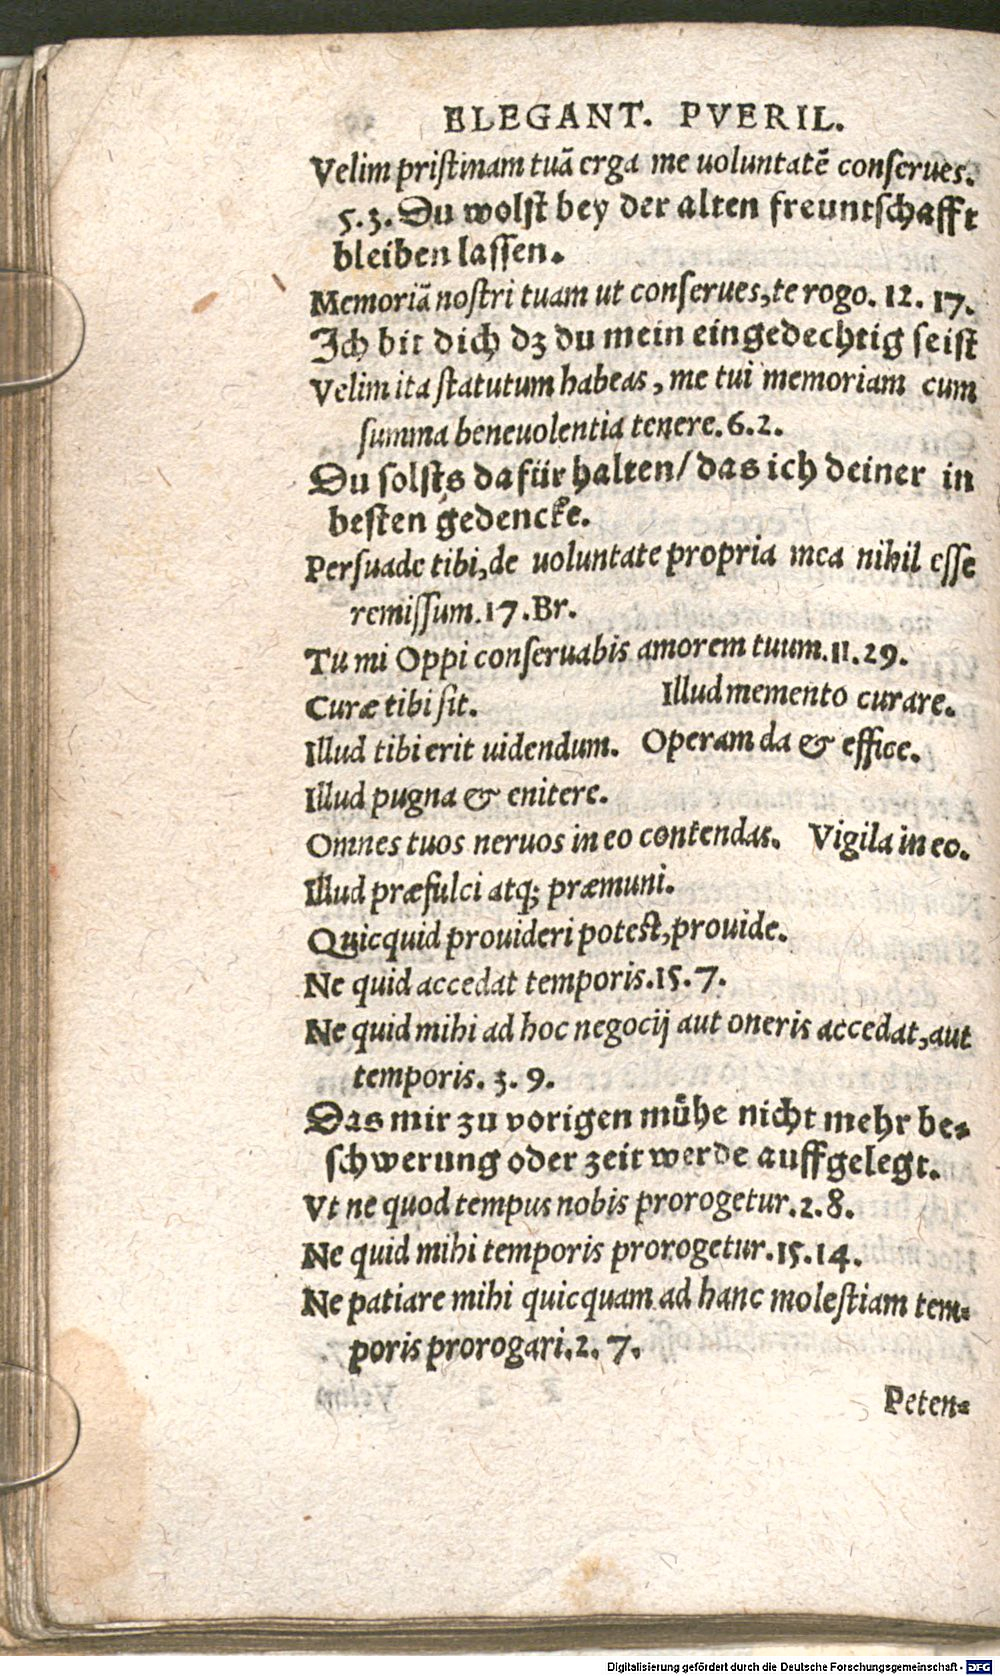 ELEGANT. PVERIL.
Velim pristinam tuā erga me uoluntatē conserues.
5.3. Du wolst bey der alten freuntschafft
bleiben lassen.
Memoriā nostri tuam ut conserues, te rogo. 12. 17.
Ich bit dich dz du mein eingedechtig seist
Velim ita statutum habeas, me tui memoriam cum
summa beneuolentia tenere. 6.2.
Du solsts dafür halten/ das ich deiner in
besten gedencke.
Persuade tibi, de uoluntate propria mea nihil esse
remissum. 17. Br.
Tu mi Oppi conseruabis amorem tuum. 11. 29.
Curæ tibi sit. Illud memento curare.
Illud tibi erit uidendum. Operam da & effice.
Illud pugna & enitere.
Omnes tuos neruos in eo contendas. Vigila in eo.
Illud præfulci atq; præmuni.
Quicquid prouideri potest, prouide.
Ne quid accedat temporis. 15. 7.
Ne quid mihi ad hoc negocij aut oneris accedat, aut
temporis. 3. 9.
Das mir zu vorigen mühe nicht mehr be-
schwerung oder zeit werde auffgelegt.
Vt ne quod tempus nobis prorogetur. 2. 8.
Ne quid mihi temporis prorogetur. 15. 14.
Ne patiare mihi quicquam ad hanc molestiam tem-
poris prorogari. 2. 7.
Peten-
Digitalisierung gefördert durch die Deutsche Forschungsgemeinschaft - DFG